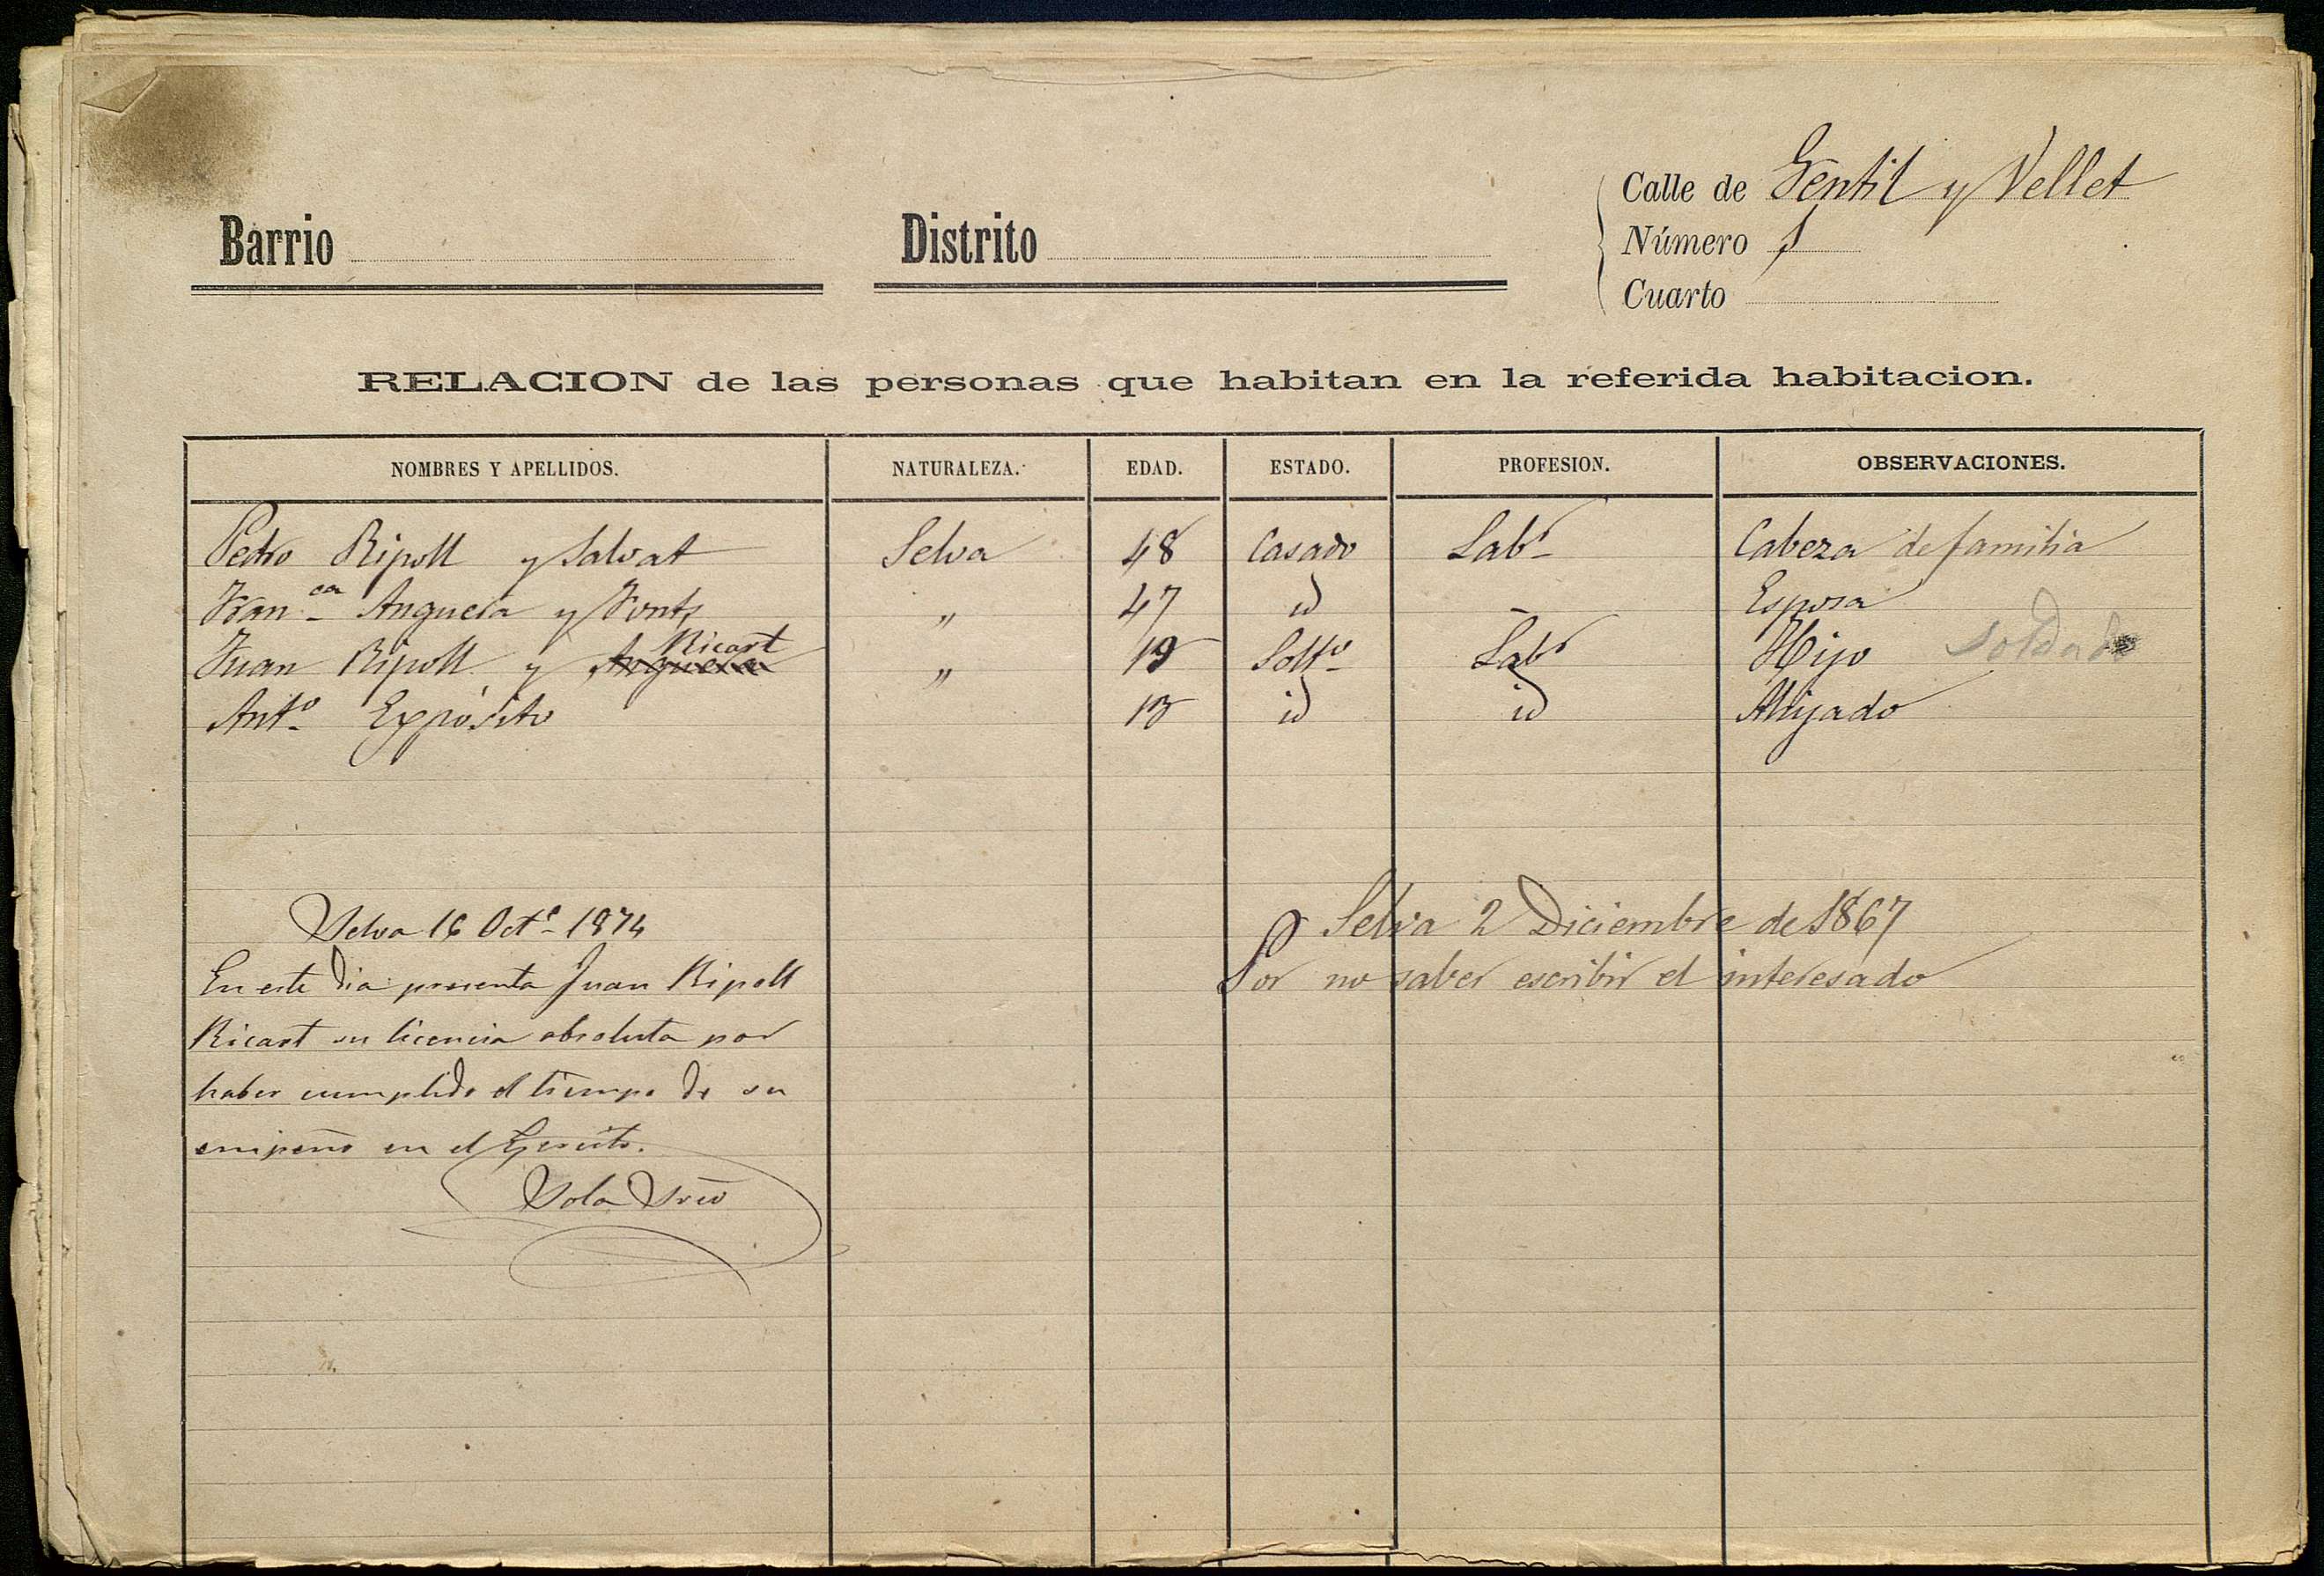 Barrio
Distrito
Calle de Gentil y Vellet
Número 1
Cuarto
RELACION de las personas que habitan en la referida habitacion.
NOMBRES Y APELLIDOS. NATURALEZA. EDAD. ESTADO. PROFESION. OBSERVACIONES.
Pedro Ripoll y Salvat Selva 48 Casado Labr Cabeza de familia
Franca Anguera y Fonts „ 47 id – Esposa
Juan Ripoll y Anguera Ricart „ 19 Solto Labr Hijo soldado
Anto Expósito 13 id id Ahijado
Selva 2 Diciembre de 1867
Por no saber escribir el interesado
Selva 16 Octe 1874
En este dia presenta Juan Ripoll
Ricart su licencia absoluta por
haber cumplido el tiempo de su
empeño en el Ejercito.
Sola Srio